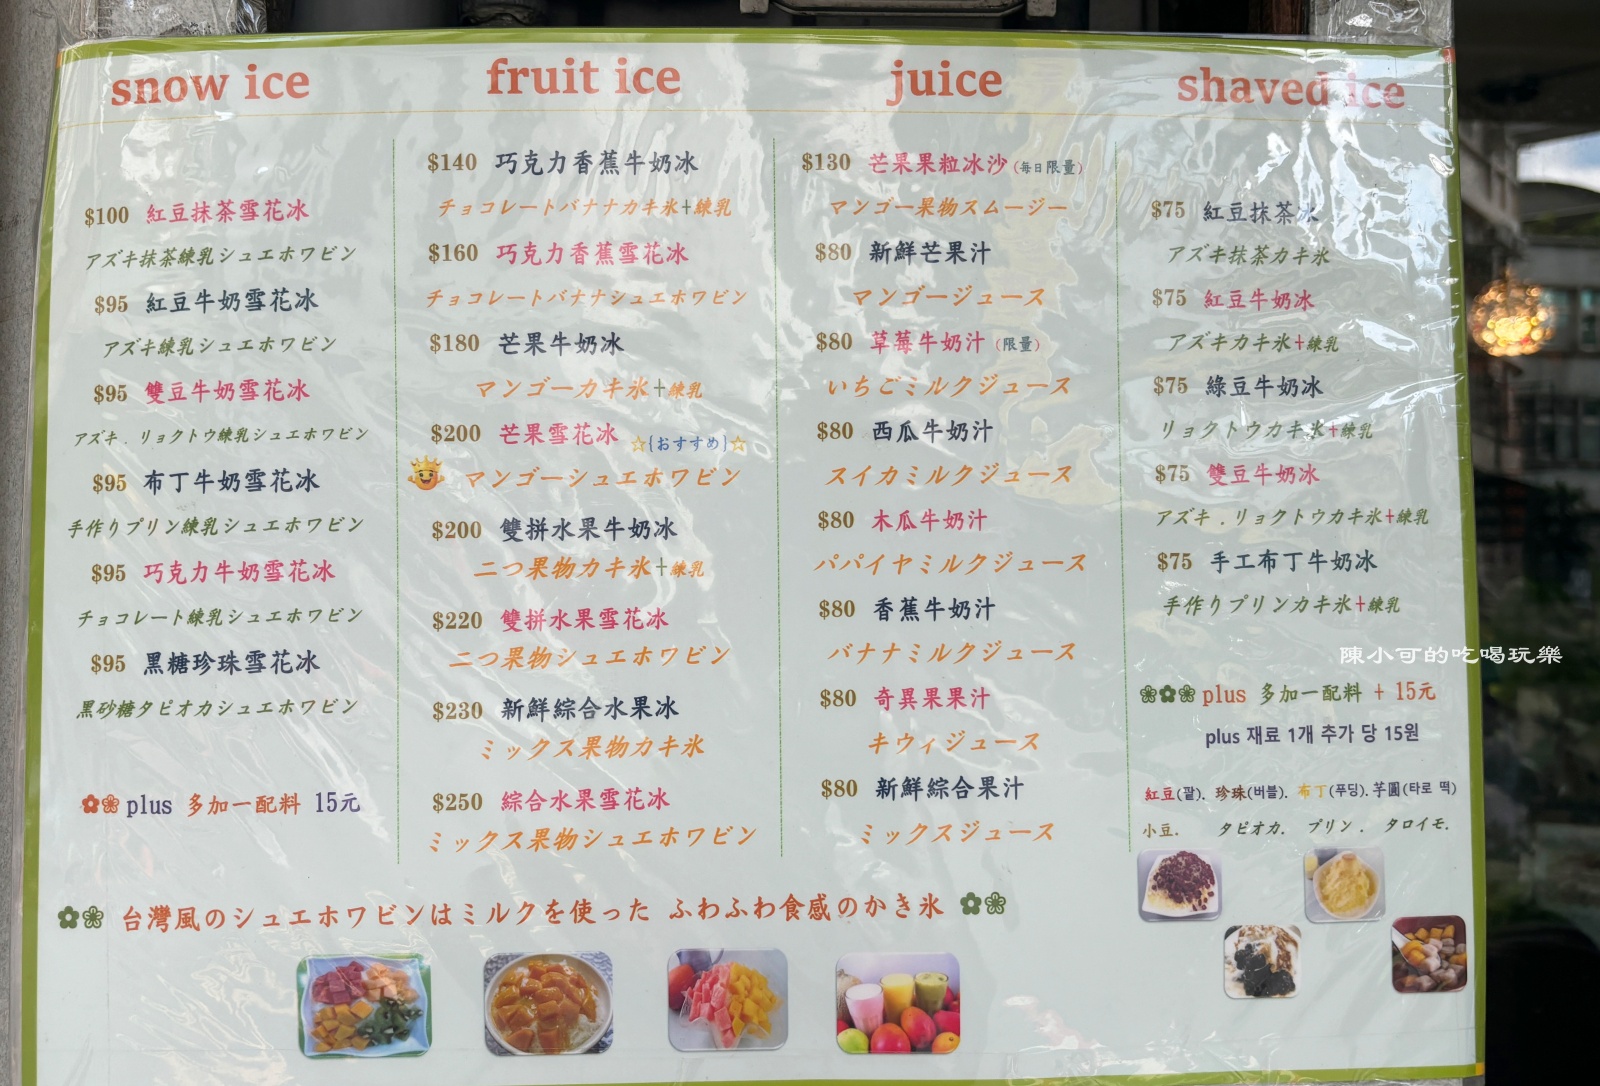 snow ice
$100 紅豆抹茶雪花冰
アズキ抹茶練乳シュエホワビン
$95 紅豆牛奶雪花冰
アズキ練乳シュエホワビン
$95 雙豆牛奶雪花冰
アズキ．リョクトウ練乳シュエホワビン
$95 布丁牛奶雪花冰
手作りプリン練乳シュエホワビン
$95 巧克力牛奶雪花冰
チョコレート練乳シュエホワビン
$95 黑糖珍珠雪花冰
黒砂糖タピオカシュエホワビン
plus 多加一配料 15元
fruit ice
$140 巧克力香蕉牛奶冰
チョコレートバナナカキ氷+練乳
$160 巧克力香蕉雪花冰
チョコレートバナナシュエホワビン
$180 芒果牛奶冰
マンゴーカキ氷+練乳
$200 芒果雪花冰 ☆{おすすめ}☆
マンゴーシュエホワビン
$200 雙拼水果牛奶冰
二つ果物カキ氷+練乳
$220 雙拼水果雪花冰
二つ果物シュエホワビン
$230 新鮮綜合水果冰
ミックス果物カキ氷
$250 綜合水果雪花冰
ミックス果物シュエホワビン
juice
$130 芒果果粒冰沙(每日限量)
マンゴー果物スムージー
$80 新鮮芒果汁
マンゴージュース
$80 草莓牛奶汁(限量)
いちごミルクジュース
$80 西瓜牛奶汁
スイカミルクジュース
$80 木瓜牛奶汁
パパイヤミルクジュース
$80 香蕉牛奶汁
バナナミルクジュース
$80 奇異果果汁
キウィジュース
$80 新鮮綜合果汁
ミックスジュース
shaved ice
$75 紅豆抹茶冰
アズキ抹茶カキ氷
$75 紅豆牛奶冰
アズキカキ氷+練乳
$75 綠豆牛奶冰
リョクトウカキ氷+練乳
$75 雙豆牛奶冰
アズキ．リョクトウカキ氷+練乳
$75 手工布丁牛奶冰
手作りプリンカキ氷+練乳
plus 多加一配料 + 15元
plus 재료 1개 추가 당 15원
紅豆(팥). 珍珠(버블). 布丁(푸딩). 芋圓(타로 떡)
小豆. タピオカ. プリン. タロイモ.
台灣風のシュエホワビンはミルクを使った ふわふわ食感のかき氷
陳小可的吃喝玩樂